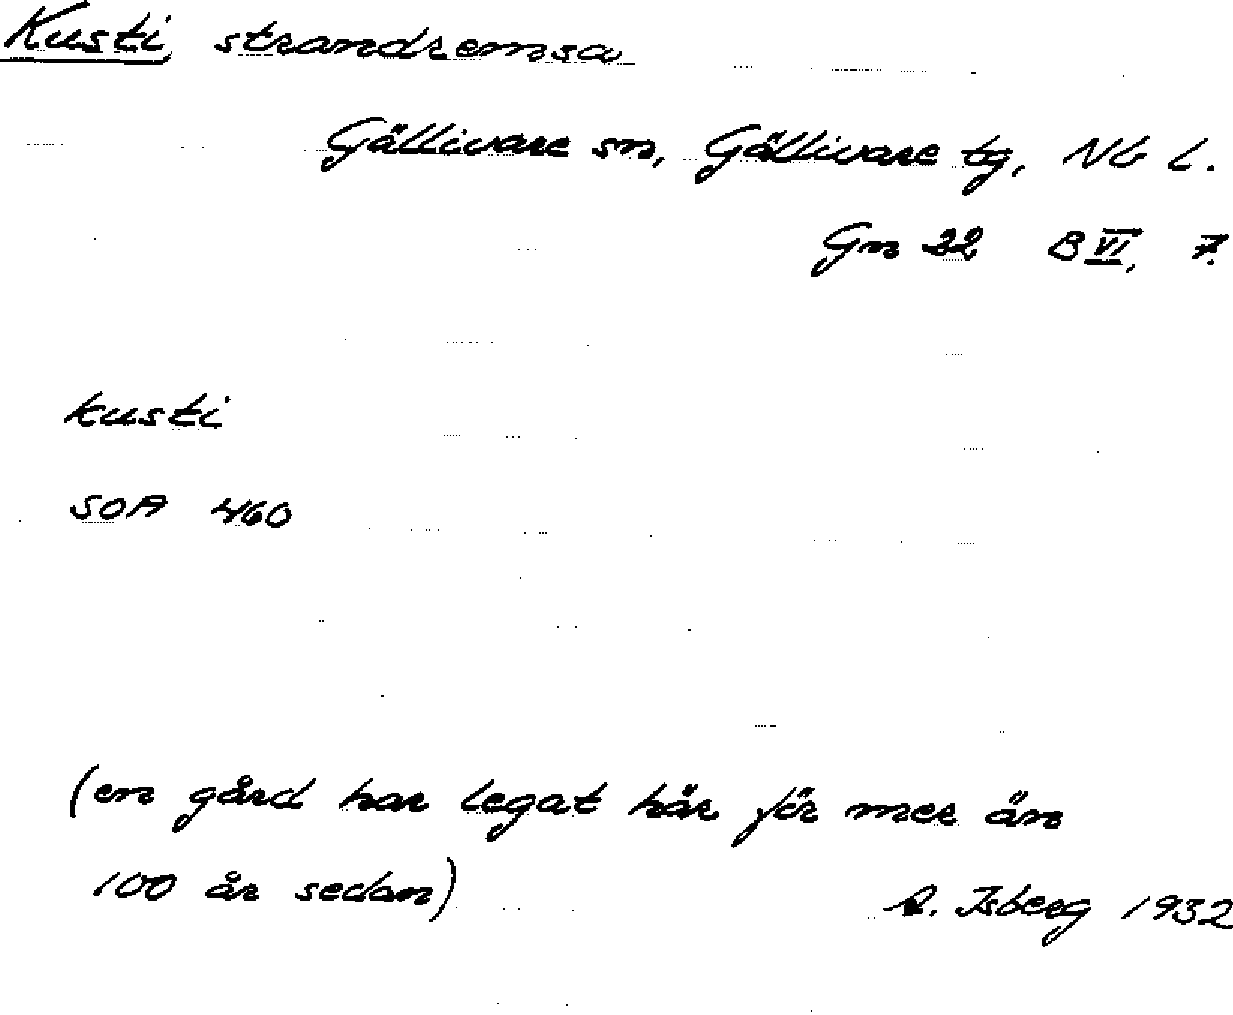 Kusti, strandremsa
Gällivare sn, Gällivare tg, Nb l.
Gn 22 B VI, 7.
kusti
SOA 460
(en gård har legat här för mer än
100 år sedan)
A. Isberg 1932